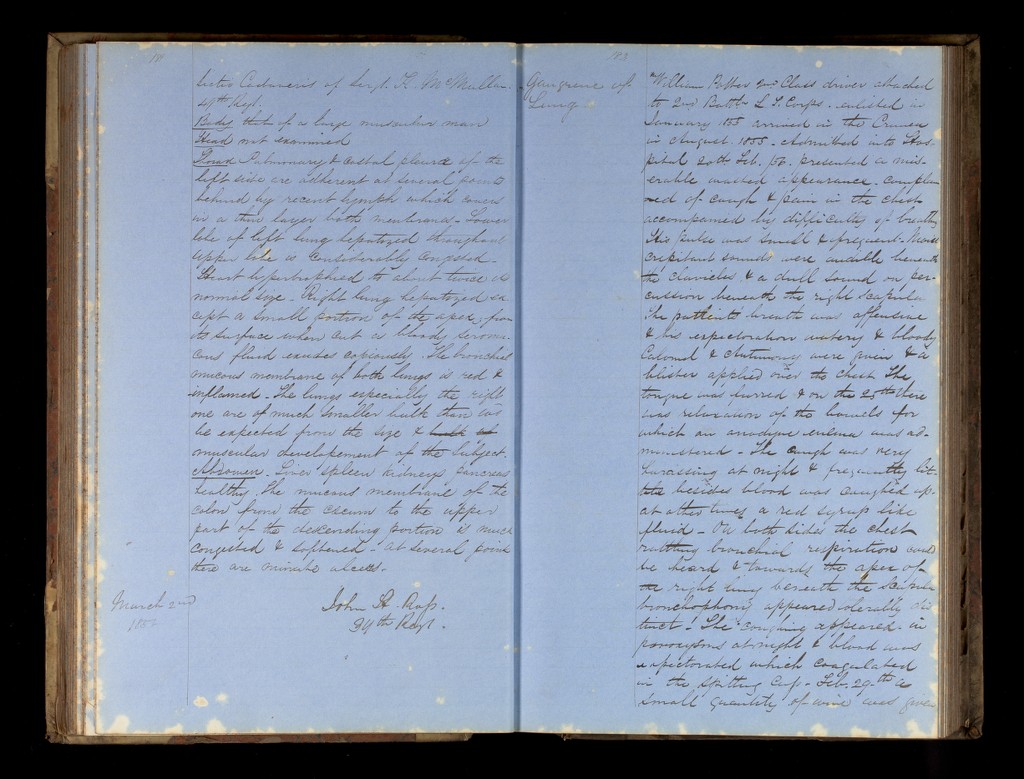 Sectio Cadaveris of Sergt. K. McMullan.
49th Regt.
Body that of a large muscular man
Head not examined
Thorax Pulmonary & costal pleura of the
left side are adherent at several points
behind by recent lymph which covers
in a thin layer both membranes - Lower
lobe of left lung hepatized throughout
upper lobe is considerably congested -
Heart hypertrophied to about twice its
normal size - Right lung hepatized ex
cept a small portion of the apex, from
its surface when cut a bloody seromu-
cous fluid exudes copiously - The bronchial
mucous membrane of both lungs is red &
inflamed - The lungs especially the right
one are of much smaller bulk than was to
be expected from the size & bulk of
muscular developement of the subject.
Abdomen - Liver spleen kidneys pancreas
healthy. The mucous membrane of the
colon from the cœcum to the upper
part of the descending portion is much
congested & softened - at several points
there are minute ulcers.
John A. Ross.
34th Regt.
March 2nd
Gangrene of
Lung
103
William 2nd Class driver attached
to 2nd Battn L. T. Corps - enlisted in
January 1855 arrived in the Crimea
in August 1855 - Admitted into Hos-
pital 20th Feb. /56. presented a mis-
erable wasted appearance - Complain
-ed of cough & pain in the chest
accompanied by difficulty of breathg
His pulse was small & frequent - Moist
crepitant sounds were audible beneath
the clavicles & a dull sound on per-
cussion beneath the right scapula
The patients breath was offensive
& his expectoration watery & bloody
Calomel & Antimony were given & a
blister applied over the chest The
tongue was furred & on the 25th there
was relaxation of the bowels for
which an anodyne enema was ad-
ministered - The cough was very
harassing at night & frequently lit-
besides blood was coughed up
at other times a red syrup like
fluid - On both sides the chest
rattling bronchial respiration could
be heard & towards the apex of
the right lung beneath the scapula
bronchophony appeared tolerably dis
tinct! The coughing appeared in
paroxysms at night & blood was
expectorated which coagulated
in the spitting cup - Feb. 29th a
small quantity of wine was given